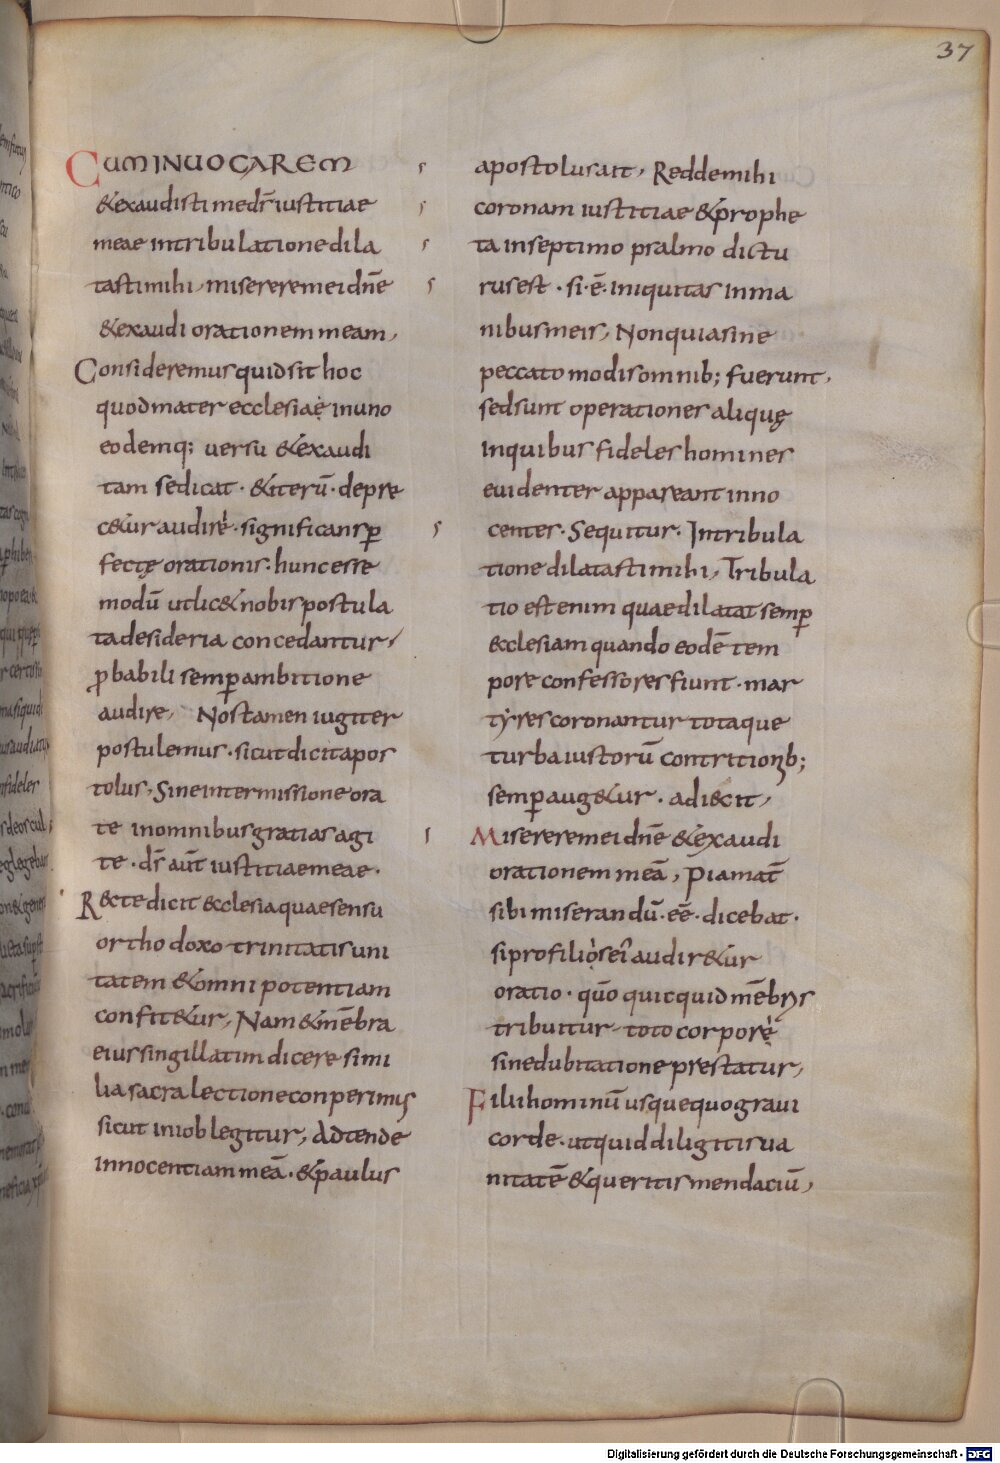 37
CUM INUOCAREM
&exaudisti me d̄s iustitiae
meae intribulatione dila
tasti mihi, miserere mei dn̄e
&exaudi orationem meam,
Consideremus quid sit hoc
quod mater ecclesiaę in uno
eodemq; uersu &exaudi
tam se dicat · &iterū · depre
c&ur audire · significans ꝑ
fectę orationis · hunc esse
modū ut lic& nobis postula
ta desideria concedantur,
ꝓbabili semꝑ ambitione
audire, Nos tamen iugiter
postulemus · sicut dicit apos
tolus, Sine intermissione ora
te in omnibus gratias agi
te · d̄s aūt iustitiae meae ·
R&cte dicit &cclesia quae sensu
orthodoxo trinitatis uni
tatem &omnipotentiam
confit&ur, Nam &mēbra
eius singillatim dicere simi
lia sacra lectione conperimus
sicut in iob legitur, Adtende
innocentiam meā · &paulus
apostolus ait, Redde mihi
coronam iustitiae &prophe
ta in septimo psalmo dictu
rus est · si · ē · iniquitas in ma
nibus meis, Non quia sine
peccato modis omnib; fuerunt,
sed sunt operationes aliquę
in quibus fideles homines
euidenter appareant inno
centes · Sequitur · In tribula
tione dilatasti mihi, Tribula
tio est enim quae dilatat semꝑ
&cclesiam quando eodē tem
pore confessores fiunt · mar
tyres coronantur tota que
turba iustorū contritionib;
semꝑ aug&ur · adiecit,
Miserere mei dn̄e &exaudi
orationem meā, Pia mat̄
sibi miserandū · eē · dicebat ·
si pro filiọ sei audir&ur
oratio · qūo quicquid mēbris
tribuitur toto corpore
sine dubitatione prestatur,
Filii hominū usque quo graui
corde · ut quid diligitis ua
nitatē &queritis mendaciū,
Digitalisierung gefördert durch die Deutsche Forschungsgemeinschaft - DFG